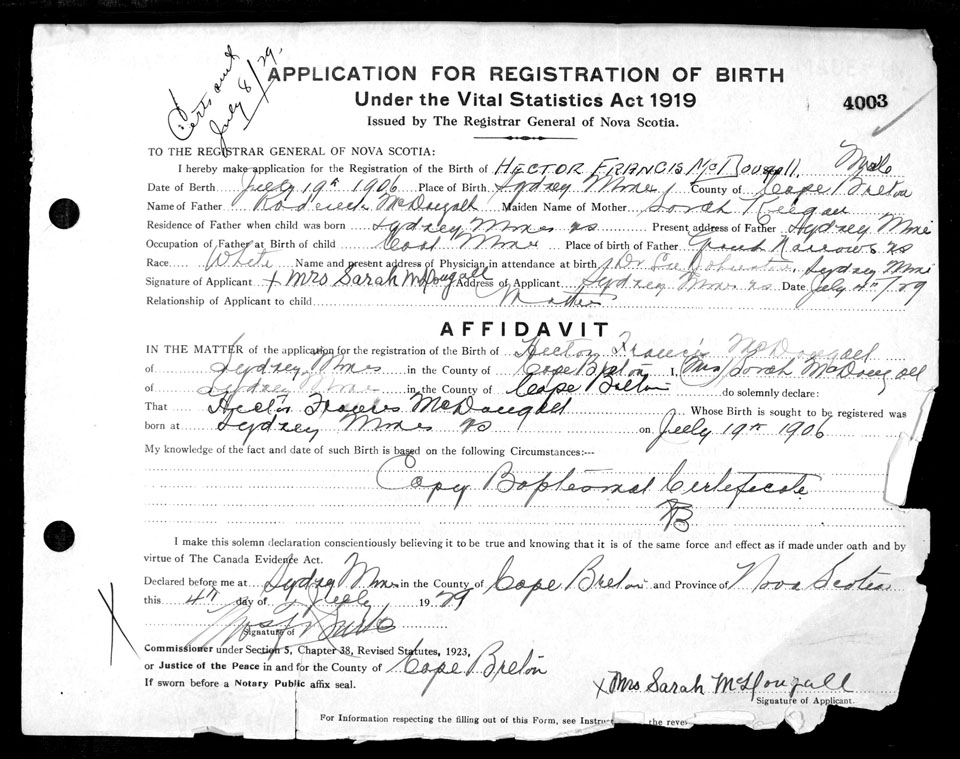 Certs sent
July 8/29.
APPLICATION FOR REGISTRATION OF BIRTH
Under the Vital Statistics Act 1919
4003
Issued by The Registrar General of Nova Scotia.
TO THE REGISTRAR GENERAL OF NOVA SCOTIA:
I hereby make application for the Registration of the Birth of HECTOR FRANCIS McDougall. Male
Date of Birth July 19th 1906 Place of Birth Sydney Mines County of Cape Breton
Name of Father Roderick McDougall Maiden Name of Mother Sarah Keegan
Residence of Father when child was born Sydney Mines NS Present address of Father Sydney Mines
Occupation of Father at Birth of child Coal Miner Place of birth of Father Grand Narrows NS
Race White Name and present address of Physician in attendance at birth Dr. Johnstone, Sydney Mines
Signature of Applicant x Mrs Sarah McDougall Address of Applicant Sydney Mines NS Date July 4th/29
Relationship of Applicant to child Mother
AFFIDAVIT
IN THE MATTER of the application for the registration of the Birth of Hector Francis McDougall
of Sydney Mines in the County of Cape Breton I, (Mrs) Sarah McDougall
of Sydney Mines in the County of Cape Breton do solemnly declare:
That Hector Francis McDougall Whose Birth is sought to be registered was
born at Sydney Mines NS on July 19th 1906
My knowledge of the fact and date of such Birth is based on the following Circumstances:--
Copy Baptismal Certificate
B
I make this solemn declaration conscientiously believing it to be true and knowing that it is of the same force and effect as if made under oath and by
virtue of The Canada Evidence Act.
Declared before me at Sydney Mines in the County of Cape Breton and Province of Nova Scotia
this 4th day of July 1929
Signature of
Commissioner under Section 5, Chapter 38, Revised Statutes, 1923,
or Justice of the Peace in and for the County of Cape Breton
If sworn before a Notary Public affix seal.
x Mrs Sarah McDougall
Signature of Applicant.
For Information respecting the filling out of this Form, see Instruc the rever